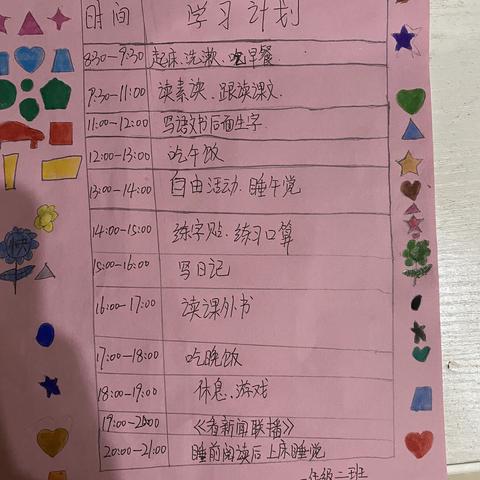 时间 学习计划
8:30-9:30 起床、洗漱、吃早餐.
9:30-11:00 读素读、跟读课文.
11:00-12:00 写语文书后面生字.
12:00-13:00 吃午饭
13:00-14:00 自由活动、睡午觉
14:00-15:00 练字贴、练习口算
15:00-16:00 写日记
16:00-17:00 读课外书
17:00-18:00 吃晚饭
18:00-19:00 休息、游戏
19:00-20:00 《看新闻联播》
20:00-21:00 睡前阅读后上床睡觉
一年级二班